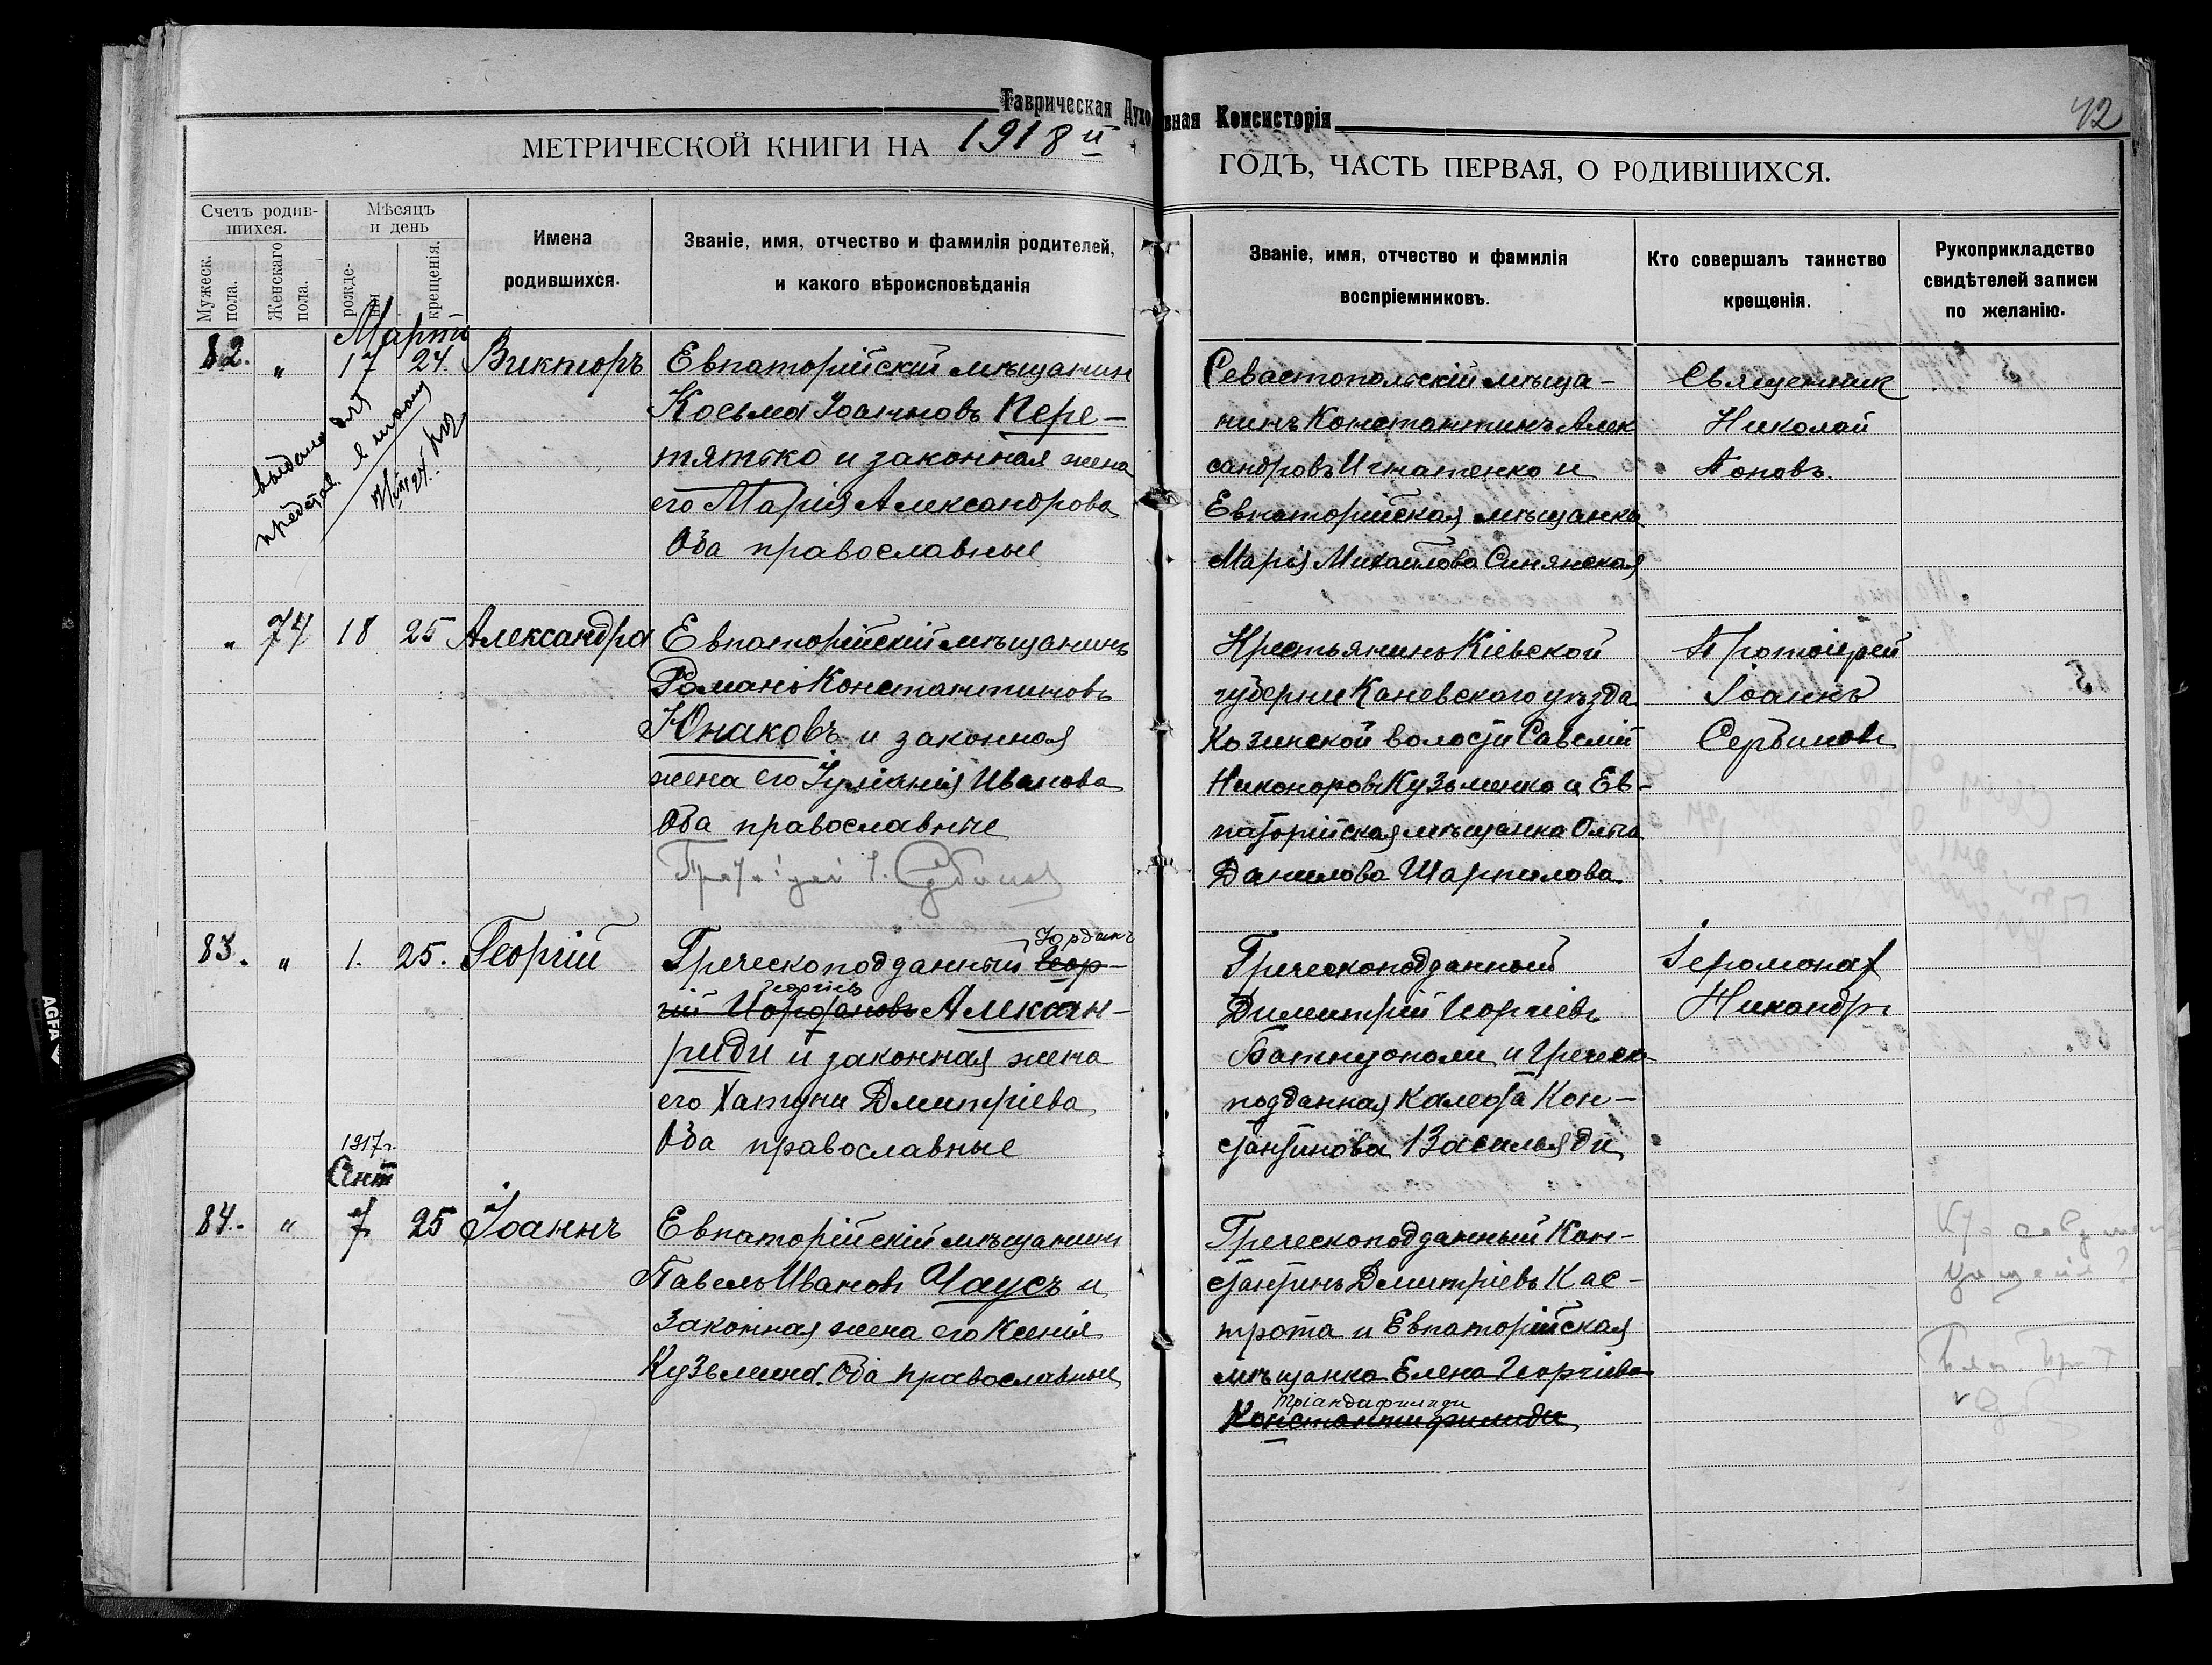 Таврическая Духовная Консисторія
42
МЕТРИЧЕСКОЙ КНИГИ НА 1918й
ГОДЪ, ЧАСТЬ ПЕРВАЯ, О РОДИВШИХСЯ.
Счетъ родив-
шихся.
Мужеск.
пола.
Женскаго
пола.
Мѣсяцъ
и день
рожде-
нія
крещенія.
Имена
родившихся.
Званіе, имя, отчество и фамилія родителей,
и какого вѣроисповѣданія
Званіе, имя, отчество и фамилія
воспріемниковъ.
Кто совершалъ таинство
крещенія.
Рукоприкладство
свидѣтелей записи
по желанію.
Мартъ
82. " 17 24. Викторъ
выдано для
представ. в школу
Евпаторійскій мѣщанин
Косьма Іоанновъ Пере-
тятько и законная жена
его Марія Александрова
Оба православные
Севастопольскій мѣща-
нинъ Константинъ Алек
сандровъ Игнатенко и
Евпаторійская мѣщанка
Марія Михаилова Синянская
Священник
Николай
Поповъ.
" 74 18 25 Александра
Евпаторійскій мѣщанинъ
Романъ Константиновъ
Юнаковъ и законная
жена его Іуліанія Иванова
Оба православные
Протоіерей І. Сербинов
Крестьянинъ Кіевской
губерніи Каневскаго уѣзда
Козинской волости Савелій
Никоноровъ Кузьменко и Ев-
паторійская мѣщанка Ольга
Данилова Шарпилова
Протоіерей
Іоаннъ
Сербиновъ
83. " 1. 25. Георгій
Іорданъ
Греческоподданный Геор-
Георгіев
гій Иордановъ Алексан-
риди и законная жена
его Хатуни Дмитріева
Оба православные
Греческоподданный
Димитрій Георгіевъ
и Греческо
подданная Калеофа Кон-
стантинова Васильяди
Іеромонах
Никандръ
1917г.
Сент
84. " 7 25 Іоаннъ
Евпаторійскій мѣщанинъ
Павелъ Ивановъ Чаусъ и
законная жена его Ксенія
Кузьмина. Оба православные
Греческоподданный Кон-
стантинъ Дмитріевъ Кас-
трота и Евпаторійская
мѣщанка Елена Георгіева
Тріандафилиди
Константифилиди
Кто совершал
крещеніе?
AGFA